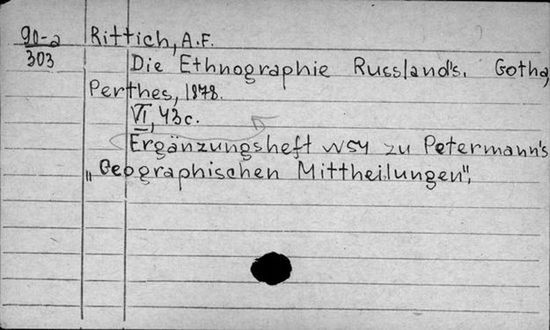 90-2 Rittich, A.F.
303 Die Ethnographie Russland's. Gotha,
Perthes, 1878.
VI, 43 c.
Ergänzungsheft N54 zu Petermann's
„Geographischen Mittheilungen",